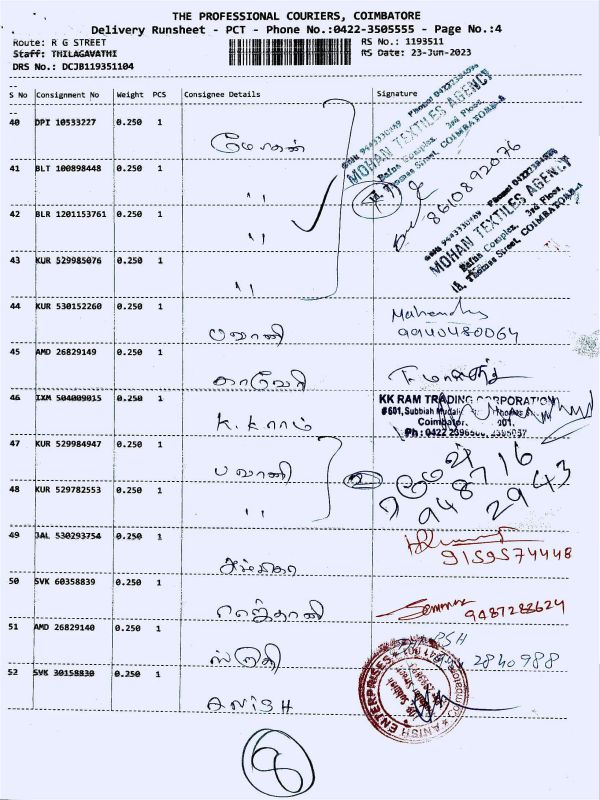 THE PROFESSIONAL COURIERS, COIMBATORE
Delivery Runsheet - PCT - Phone No.:0422-3505555 - Page No.:4
Route: R G STREET
RS No.: 1193511
Staff: THILAGAVATHI
RS Date: 23-Jun-2023
DRS No.: DCJB119351104
S No Consignment No Weight PCS Consignee Details Signature
40 DPI 10533227 0.250 1
மோகன்
MOHAN TEXTILES AGENCY
Bafna Complex, 3rd Floor,
Thomas Street, COIMBATORE-1
41 BLT 100898448 0.250 1
"
8610892076
42 BLR 1201153761 0.250 1
"
MOHAN TEXTILES AGENCY
Bafna Complex, 3rd Floor,
Thomas Street, COIMBATORE-1
43 KUR 529985076 0.250 1
"
44 KUR 530152260 0.250 1
பவானி
Mahendra
9940480064
45 AMD 26829149 0.250 1
காவேரி
46 IXM 504009015 0.250 1
K.K.ராம்
KK RAM TRADING CORPORATION
#601, Subbiah
47 KUR 529984947 0.250 1
பவானி
2
ரமேஷ்
9487 16
2943
48 KUR 529782553 0.250 1
"
49 JAL 530293754 0.250 1
9159574448
50 SVK 60358839 0.250 1
9487288624
51 AMD 26829140 0.250 1
ஸ்ருதி
2840988
52 SVK 30158830 0.250 1
ANISH
ANISH ENTERPRISES
8